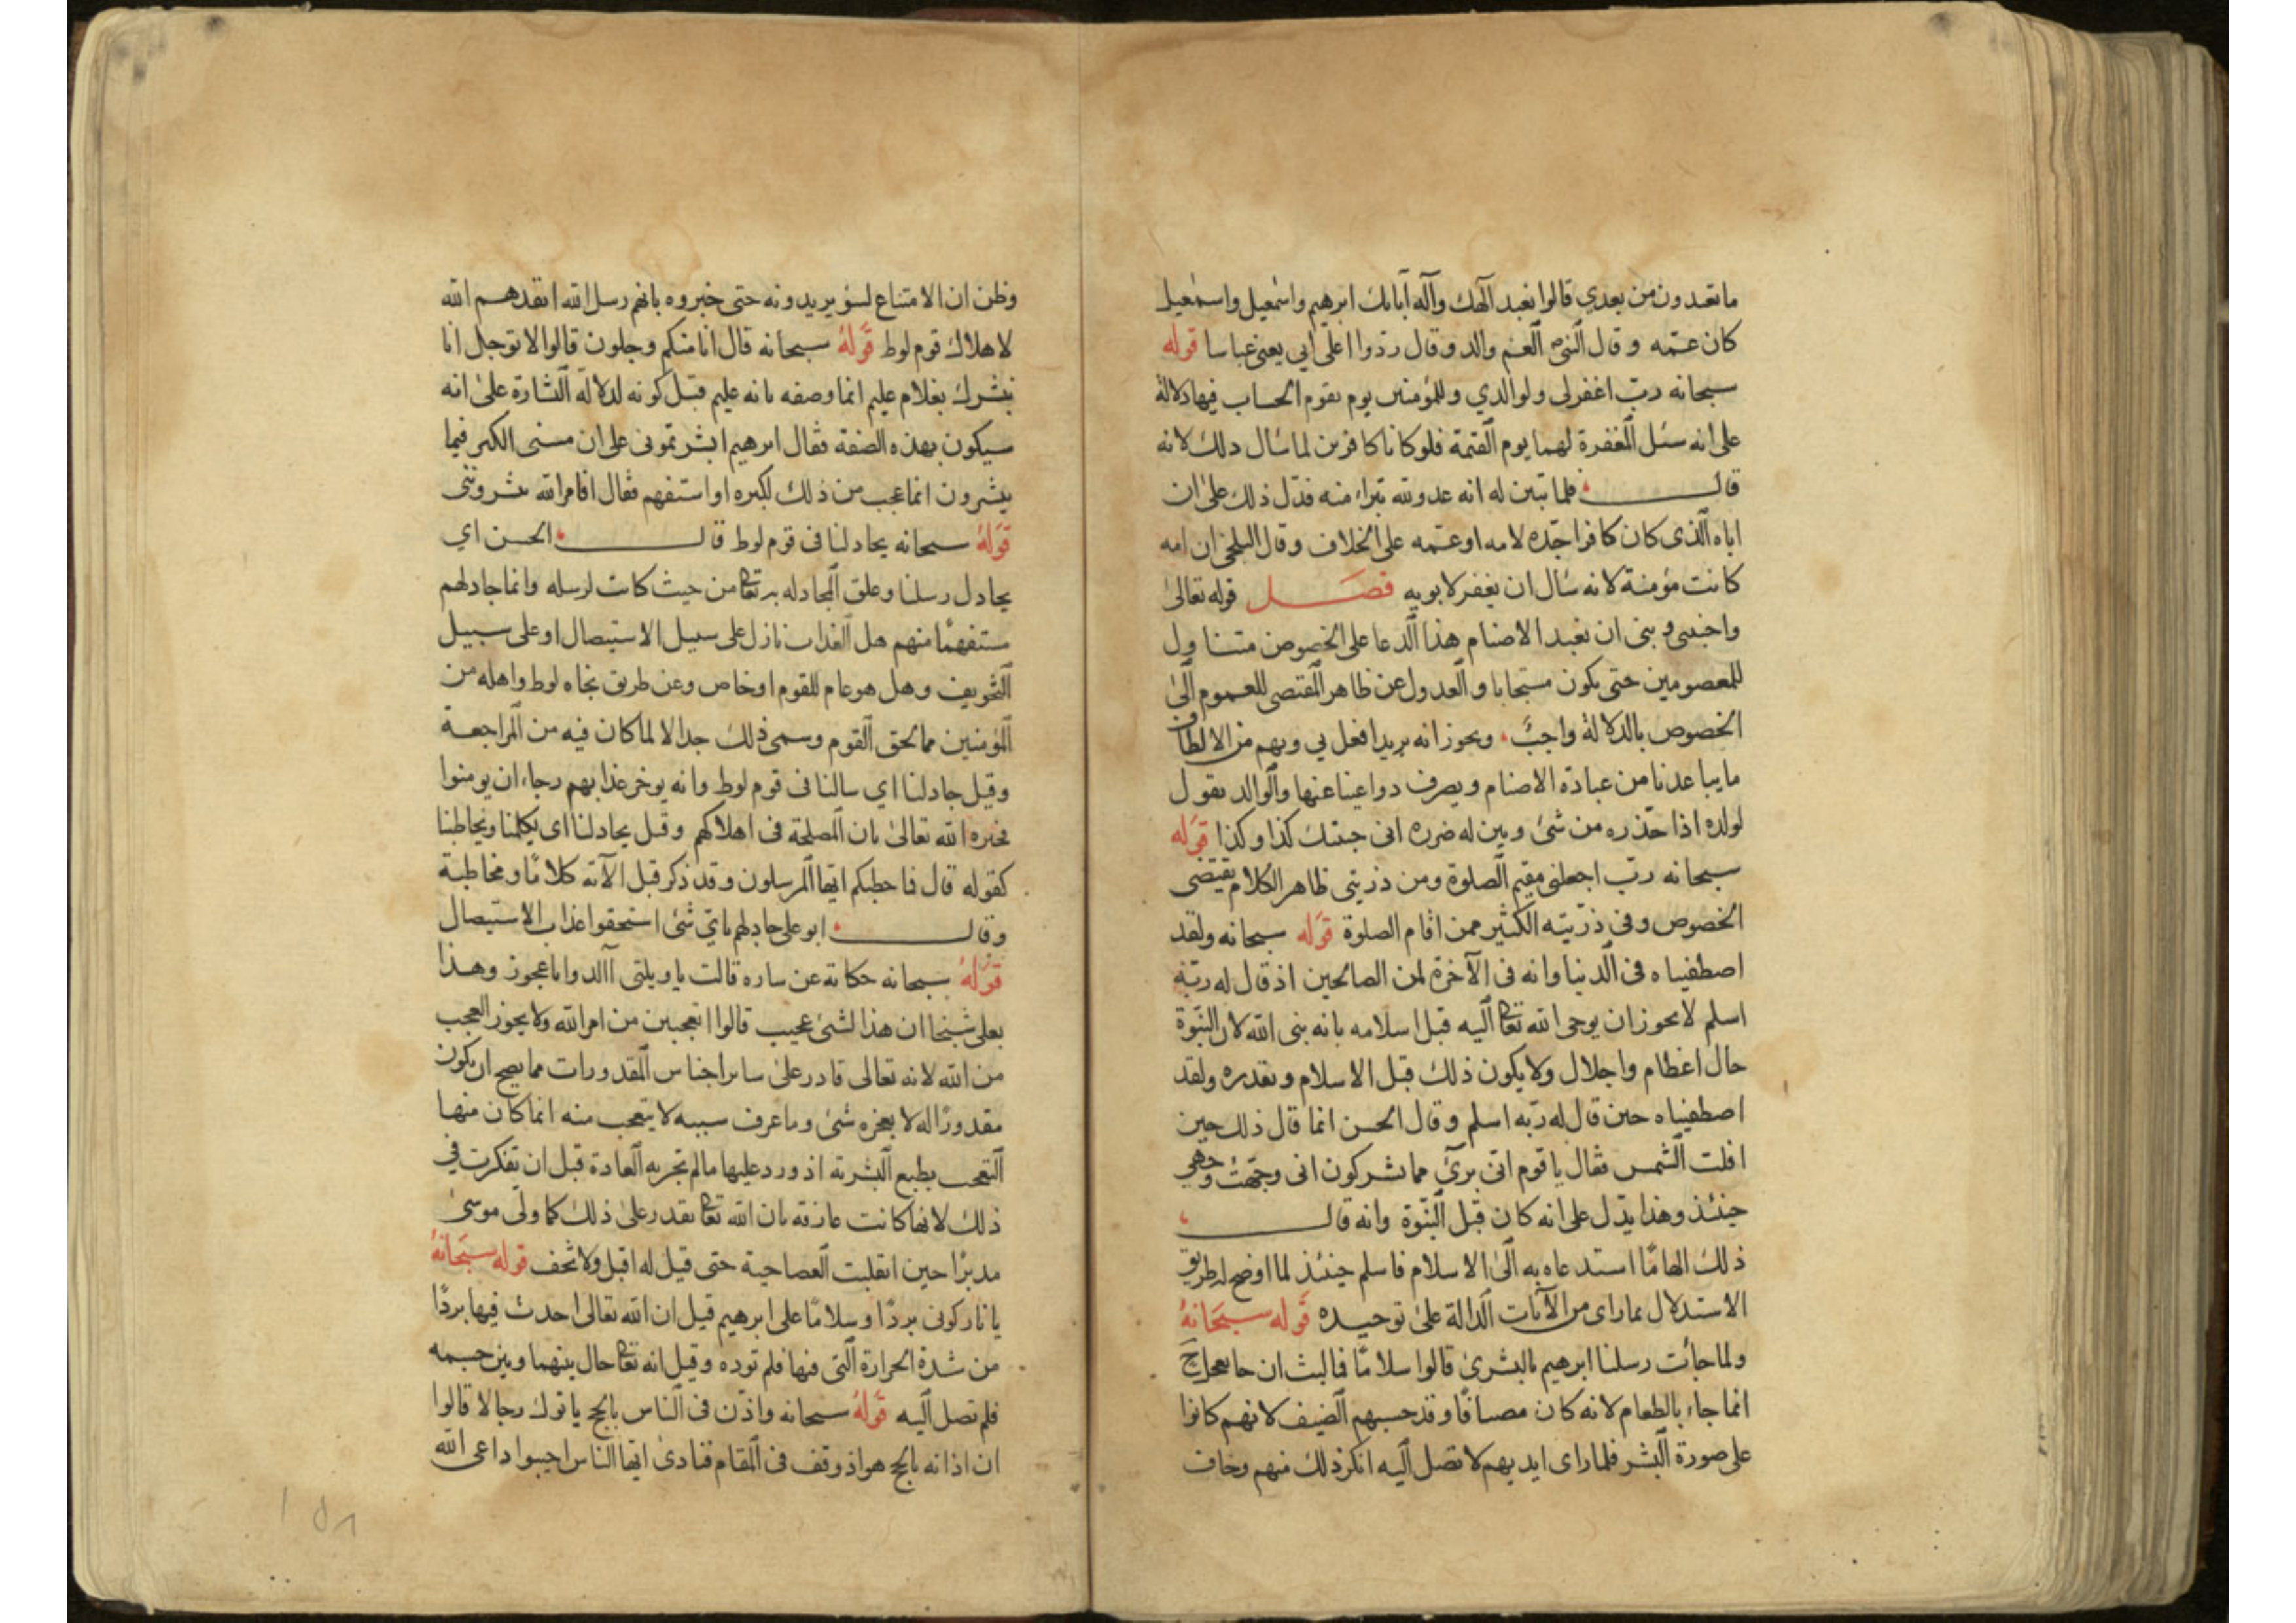 ما تعبدون من بعدي قالوا نعبد آلهك وآله آبائك ابرهيم واسمعيل واسمعيل
كان عمّه وقال النبي العم والد وقال ردّوا علي ابي يعني عباسا قوله
سبحانه ربّ اغفر لي ولوالدي وللمؤمنين يوم يقوم الحساب فيها دلالة
على انه سئل المغفرة لهما يوم القيمة فلو كانا كافرين لما سأل ذلك لانه
قال فلما تبين له انه عدو لله تبرا منه فدّل ذلك على ان
اباه الذي كان كافرا جدّه لامه او عمّه على الخلاف وقال البلخي ان امه
كانت مؤمنة لانه سأل ان يغفر لابويه فصل قوله تعالى
واجنبني وبني ان نعبد الاصنام هذا الدعا على الخصوص متناول
للمعصومين حتى يكون مستجابا والعدول عن ظاهر المقتضى للعموم الى
الخصوص بالدلالة واجبٌ ويجوز انه يريد افعل بي وبهم من الالطاف
ما يباعدنا من عبادة الاصنام ويصرف دواعينا عنها والوالد يقول
لولده اذا حذّره من شئ وبين له ضرره اني جنبتك كذا وكذا قوله
سبحانه ربّ اجعلني مقيم الصلوة ومن ذريتي ظاهر الكلام يقتضى
الخصوص وفي ذرّيته الكثير ممن اقام الصلوة قوله سبحانه ولقد
اصطفيناه في الدنيا وانه في الآخرة لمن الصالحين اذ قال له ربّه
اسلم لا يجوز ان يوحى الله تعالى اليه قبل اسلامه بانه نبي الله لان النبوّة
حال اعظام واجلال ولا يكون ذلك قبل الاسلام وتقديره ولقد
اصطفيناه حين قال له ربّه اسلم وقال الحسن انما قال ذلك حين
افلت الشمس فقال يا قوم انّي برئ مما تشركون اني وجّهت وجهي
حينئذ وهذا يدّل على انه كان قبل النبوّة وانه قال
ذلك الهامًا استدعاه به الى الاسلام فاسلم حينئذ لما اوضح له طريق
الاستدلال بما راى من الآيات الدالة على توحيده قوله سبحانه
ولما جأت رسلنا ابرهيم بالبشرى قالوا سلامًا فما لبث ان جا بعجل
انما جاء بالطعام لانه كان مضيافًا وقد حسبهم الضيف لانهم كانوا
على صورة البشر فلما راى ايديهم لا تصل اليه انكر ذلك منهم وخاف
وظن ان الامتناع لسؤ يريدونه حتى خبروه بانهم رسل الله انفذهم الله
لاهلاك قوم لوط قوله سبحانه قال انا منكم وجلون قالوا لا توجل انا
نبشرك بغلام عليم انما وصفه بانه عليم قبل كونه لدلالة البشارة على انه
سيكون بهذه الصفة فقال ابرهيم ابشرتموني على ان مسنى الكبر فبما
تبشرون انما عجب من ذلك لكبره او استفهم فقال افامر الله تبشرونني
قوله سبحانه يجادلنا في قوم لوط قال الحسن اي
يجادل رسلنا وعلق المجادله به تعالى من حيث كانت لرسله وانما جادلهم
مستفهمًا منهم هل العذاب نازل على سبيل الاستيصال او على سبيل
التخويف وهل هو عام للقوم او خاص وعن طريق نجاه لوط واهله من
المؤمنين مما لحق القوم وسمي ذلك جدالا لما كان فيه من المراجعة
وقيل جادلنا اي سالنا في قوم لوط وانه يوخر عذابهم رجاء ان يومنوا
فخبره الله تعالى بان المصلحة في اهلاكهم وقيل يجادلنا اي يكلمنا ويخاطبنا
كقوله قال فما خطبكم ايها المرسلون وقد ذكر قبل الآية كلامًا ومخاطبة
وقال ابو على جادلهم باي شئ استحقوا عذاب الاستيصال
قوله سبحانه حكاية عن ساره قالت يا ويلتى أالد وانا عجوز وهذا
بعلي شيخا ان هذا لشئ عجيب قالوا اتعجبين من امر الله ولا يجوز العجب
من الله لانه تعالى قادر على سائر اجناس المقدورات مما يصح ان يكون
مقدورًا له لا يعجزه شئ وما عرف سببه لا يتعجب منه انما كان منها
التعجب بطبع البشرية اذ ورد عليها ما لم تجر به العادة قبل ان تفكرت في
ذلك لانها كانت عارفه بان الله تعالى يقدر على ذلك كما ولى موسى
مدبرًا حين انقلبت العصا حية حتى قيل له اقبل ولا تخف قوله سبحانه
يا نار كوني بردًا وسلامًا على ابرهيم قيل ان الله تعالى احدث فيها بردًا
من شدة الحرارة التي فيها فلم توده وقيل انه تعالى حال بينهما وبين جسمه
فلم تصل اليه قوله سبحانه واذّن في الناس بالحج ياتوك رجالا قالوا
ان اذانه بالحج هو اذ وقف في المقام فنادى ايها الناس اجيبوا داعي الله
١٥٨